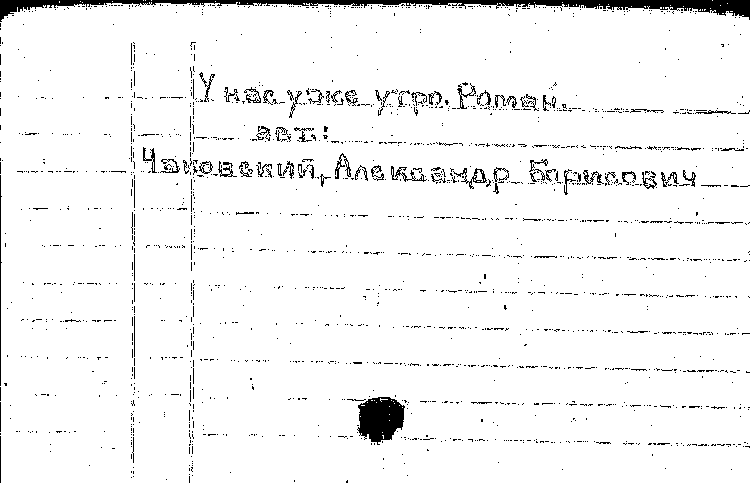 У нас уже утро. Роман.
авт.:
Чаковский, Александр Борисович